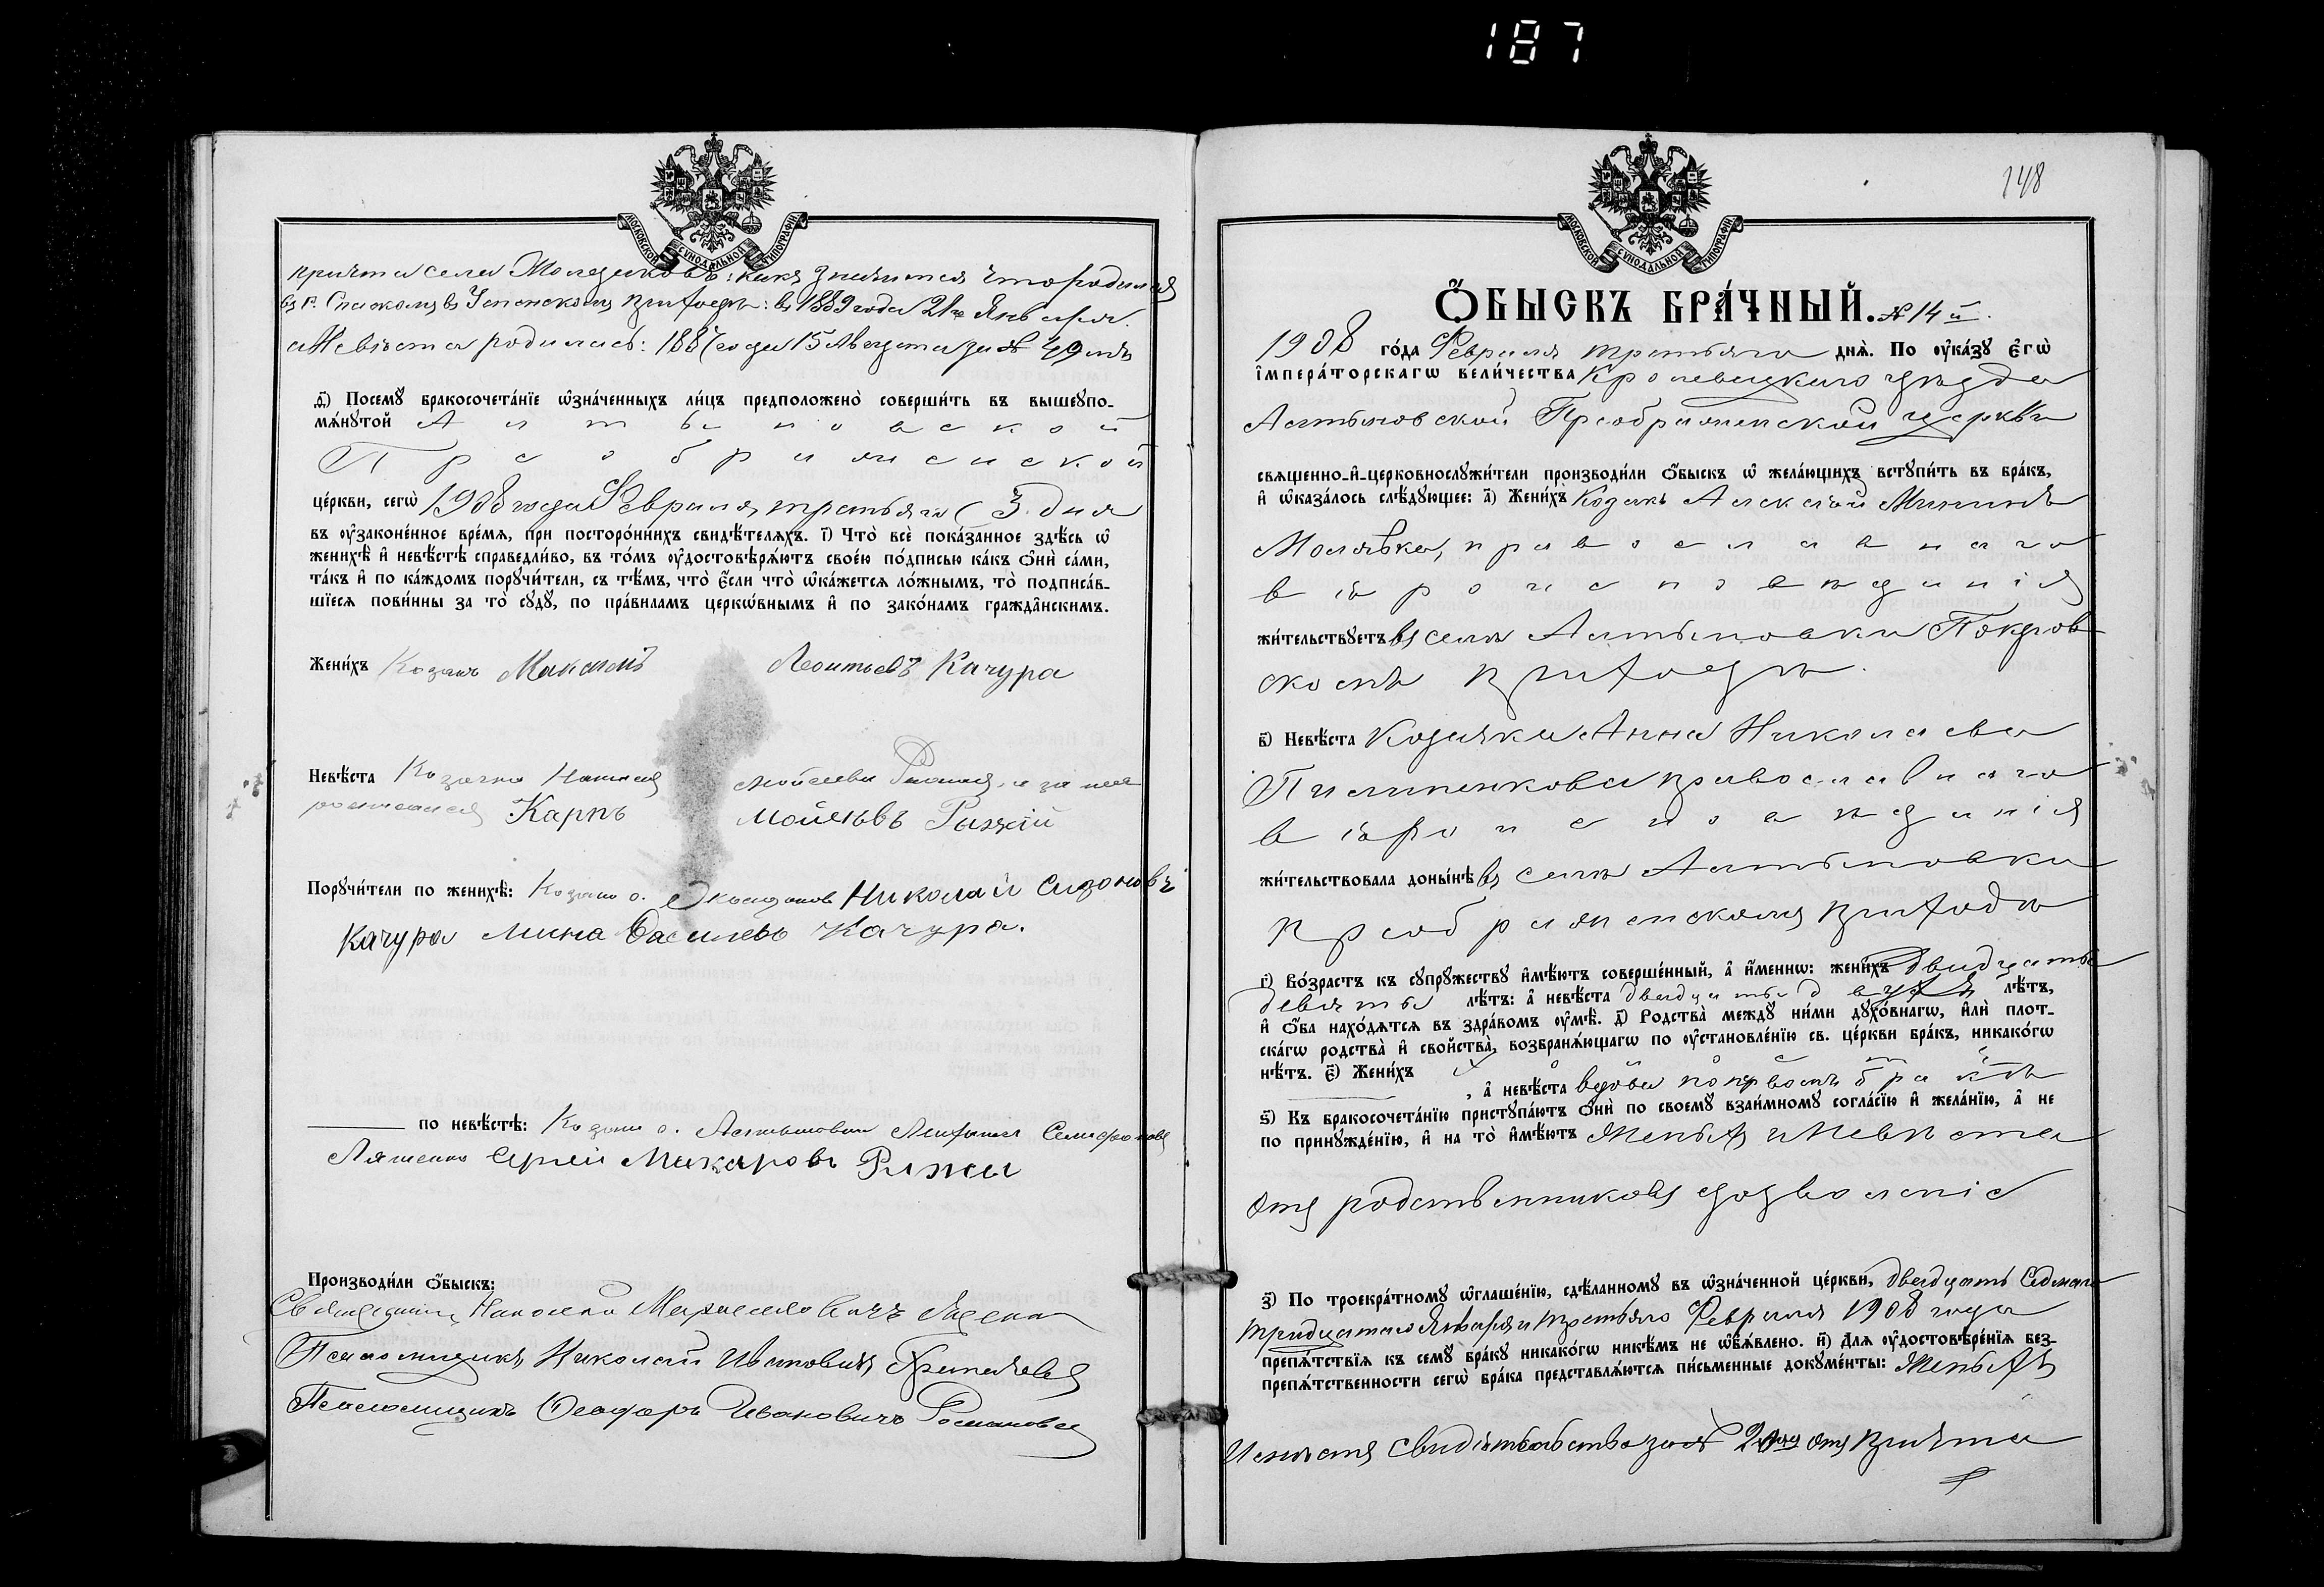 187
МОСКОВСКОЙ СѴНОДАЛЬНОЙ ТИПОГРАФІИ
причта села
въ с. Спаскомъ въ Успенскомъ приходѣ: въ 1889 года 21го Января.
а Невѣста родилась: 1887 года 15 Августа за №
д҃і) Посемꙋ̀ бракосочета́нїе ѡ҆зна́ченныхъ ли́цъ предположено̀ соверши́ть въ вышеꙋпо-
мѧ́нꙋтой Алтыновской
Преображенской
це́ркви, сегѡ̀ 1908 года Февраля третьяго (3 дня
въ ᲂу҆законе́нное вре́мѧ, при посторо́ннихъ свидѣ́телѧхъ. і҃) Что̀ всѐ пока́занное здѣ́сь ѡ҆
женихѣ̀ и҆ невѣ́стѣ справедли́во, въ то́мъ ᲂу҆достовѣрѧ́ютъ свое́ю по́дписью ка́къ ѻ҆нѝ са́ми,
та́къ и҆ по ка́ждомъ порꙋчи́тели, съ тѣ́мъ, что̀ є҆́сли что̀ ѡ҆ка́жетсѧ ло́жнымъ, то̀ подписа́в-
шїесѧ пови́нны за то̀ сꙋдꙋ̀, по пра́виламъ церкѡ́внымъ и҆ по зако́намъ гражда̂нскимъ.
Жени́хъ Козакъ Максимъ Леонтьевъ Качура
Невѣ́ста Козачка Мойсеева за нея
Карпъ Мойсѣевъ Рыжій
Порꙋчи́тели по женихѣ̀: Козаки с. Николай Сизоновъ
Качура Мина Василевъ Качура.
по невѣ́стѣ: Козаки с. Алтыновки
Ляшенко Сергей Макаровъ Рыжы
Производи́ли ѻ҆́быскъ:
Священникъ
Псаломщикъ Николай Ивановичъ
Псаломщикъ Феодоръ Ивановичъ Романовъ
МОСКОВСКОЙ СѴНОДАЛЬНОЙ ТИПОГРАФІИ
148
Ѻ҆́БЫСКЪ БРА́ЧНЫЙ. № 14й.
1908 го́да Февраля третьяго днѧ̀. По ᲂу҆ка́зꙋ є҆гѡ̀
і҆мпера́торскагѡ вели́чества Кролевецкаго уѣзда
Алтыновской Преображенской церкви
свѧщенно-и҆-церковнослꙋжи́тели производи́ли ѻ҆́быскъ ѡ҆ жела́ющихъ встꙋпи́ть въ бра́къ,
и҆ ѡ҆каза́лось слѣ́дꙋющее: а҃) Жени́хъ Козакъ Алексѣй Мининъ
православнаго
вѣроисповѣданія
жи́тельствꙋетъ въ селѣ Алтыновки Покров
скомъ приходѣ.
в҃) Невѣ́ста Козачка Анна Николаева
Пилипенкова православнаго
вѣроисповѣданія
жи́тельствовала доны́нѣ въ селѣ Алтыновки
Преображенскомъ приходѣ
г҃) Во́зрастъ къ сꙋпрꙋ́жествꙋ и҆мѣ́ютъ соверше́нный, а҆ и҆́меннѡ: жени́хъ двадцать
девять лѣ́тъ: а҆ невѣ́ста двадцать двухъ лѣ́тъ,
и҆ ѻ҆́ба нахо́дѧтсѧ въ здра́вомъ ᲂу҆мѣ̀. д҃) Родства̀ междꙋ̀ ни́ми дꙋхо́внагѡ, и҆лѝ плот-
ска́гѡ родства̀ и҆ свойства̀, возбранѧ́ющагѡ по ᲂу҆становле́нїю св. це́ркви бра́къ, никако́гѡ
нѣ́тъ. є҃) Жени́хъ , а҆ невѣ́ста вдова по первомъ бракѣ
ѕ҃) Къ бракосочета́нїю пристꙋпа́ютъ ѻ҆нѝ по своемꙋ̀ взаи́мномꙋ согла́сїю и҆ жела́нїю, а҆ не
по принꙋжде́нїю, и҆ на то̀ и҆мѣ́ютъ Женихъ и Невѣста
отъ родственниковъ дозволеніе
з҃) По троекра́тномꙋ ѡ҆глаше́нїю, сдѣ́ланномꙋ въ ѡ҆зна́ченной це́ркви, двадцать Седмаго
тридцатаго Января и третьяго Февраля 1908 года
препѧ́тствїѧ къ семꙋ̀ бра́кꙋ никако́гѡ никѣ́мъ не ѡ҆бъѧ́влено. и҃) Длѧ ᲂу҆достовѣре́нїѧ без-
препѧ́тственности сегѡ̀ бра́ка представлѧ́ютсѧ пи́сьменные докꙋме́нты: Женихъ
свидѣтельство за № отъ причта